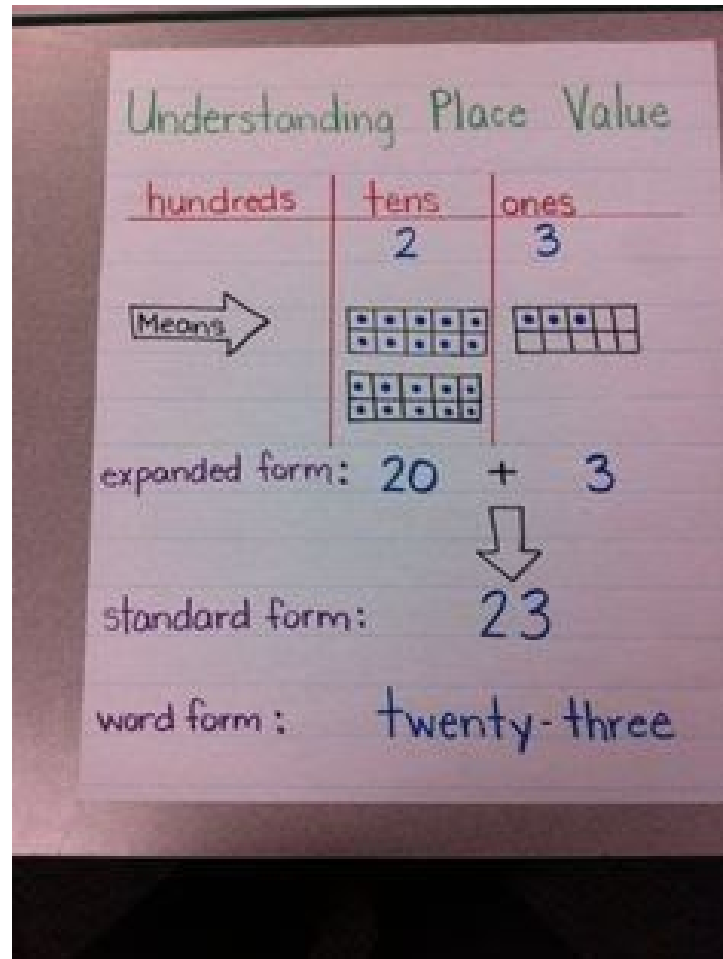 Understanding Place Value
hundreds tens ones
2 3
Means
expanded form: 20 + 3
standard form: 23
word form: twenty-three